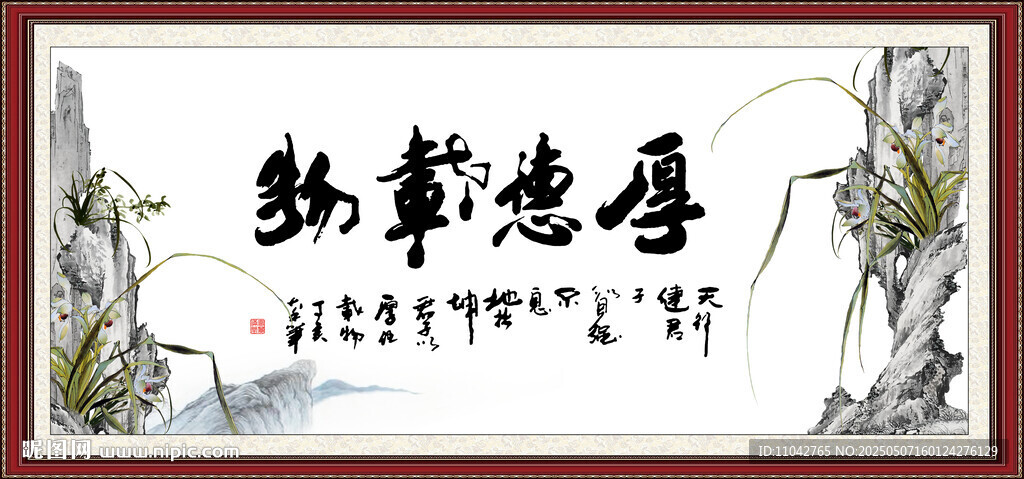 厚德載物
天行
健君
子
以自强
不
息
地势
坤
君子以
厚德
載物
丁亥
昵图网 www.nipic.com
ID:11042765 NO:20250507160124276129